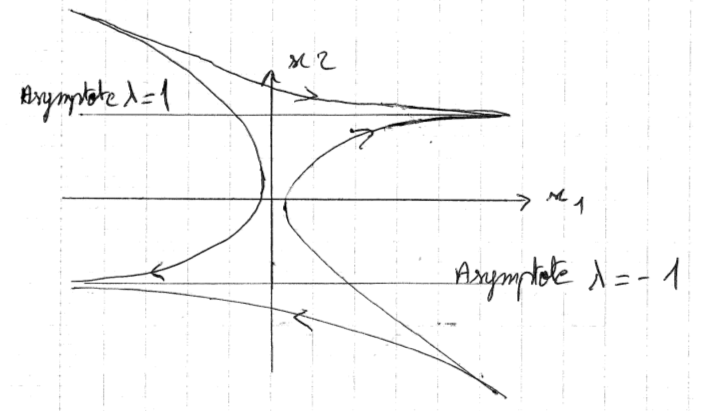 x2
Asymptote λ=1
x1
Asymptote λ=-1